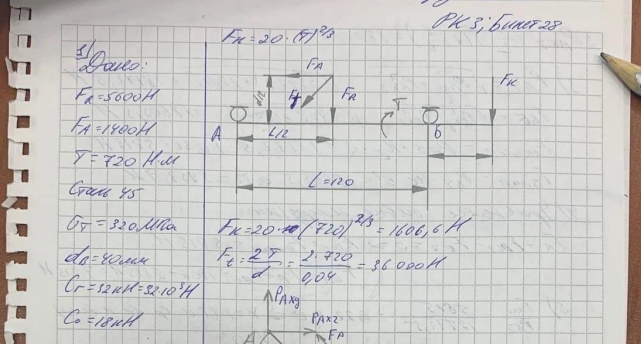 РК3; Билет 28
1)
Дано:
F_R = 5600Н
F_A = 1400Н
T = 720 Н·м
Сталь 45
σ_T = 320 МПа
d_в = 40мм
C_r = 32кН = 32·10³Н
C_0 = 18кН
F_к = 20·(T)^2/3
F_A
d/2
F_t
F_R
F_к
A
L/2
T
Б
L = 120
F_к = 20·(720)^2/3 = 1606,6 Н
F_t = 2T/d = 2·720/0,04 = 36000Н
P_Axy
P_Axz
A
F_A